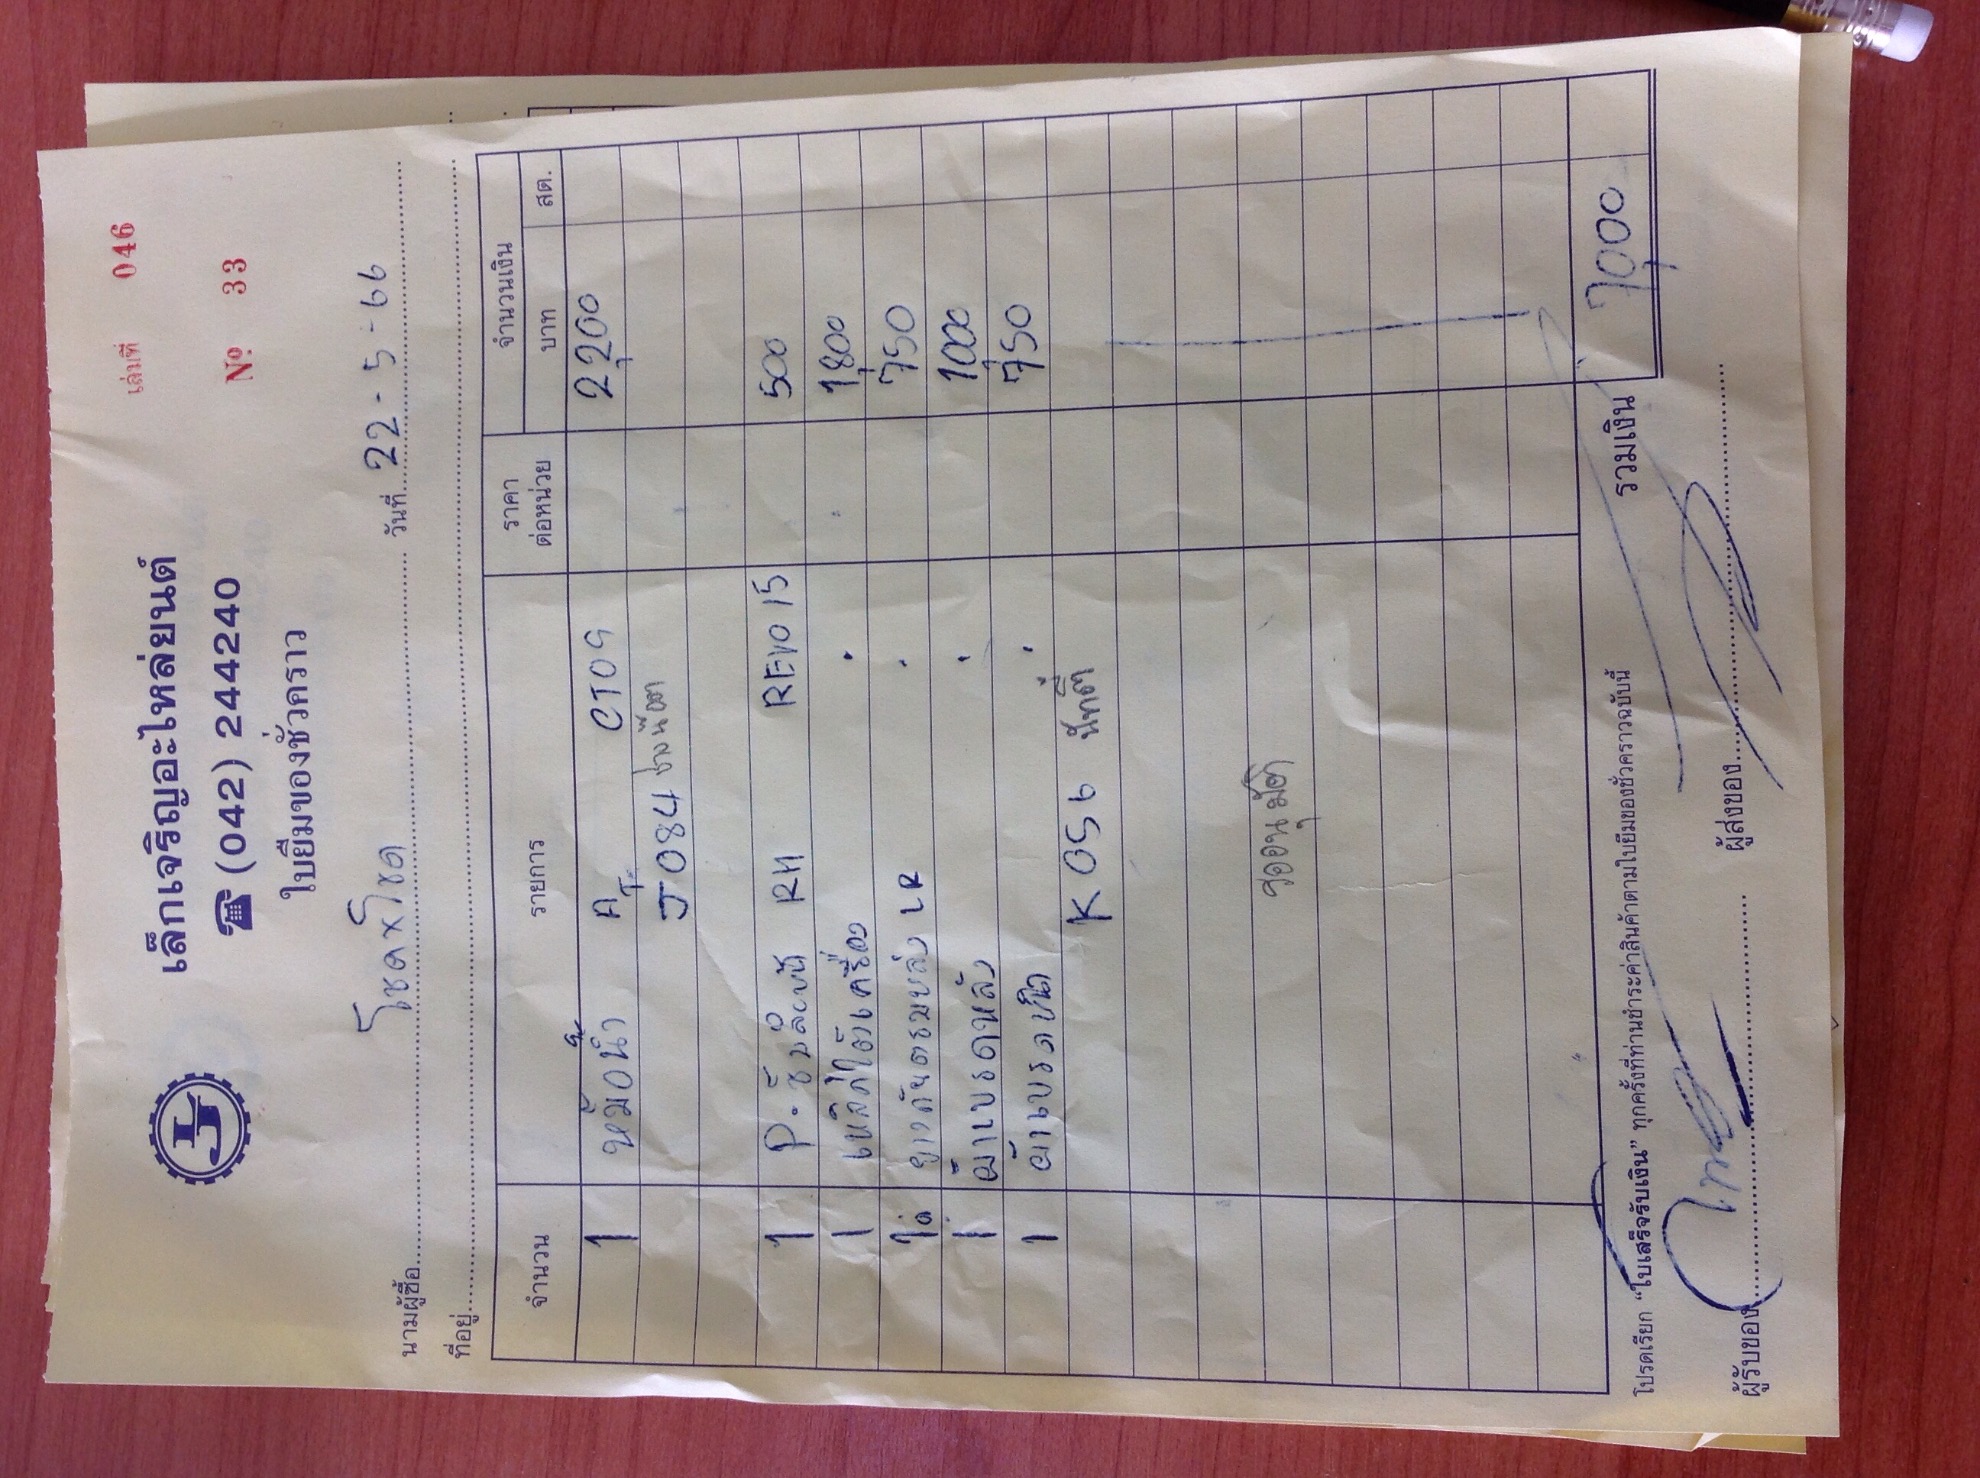 เล่มที่ 046
เล็กเจริญอะไหล่ยนต์
☎ (042) 244240
Nº 33
ใบยืมของชั่วคราว
นามผู้ซื้อ โชคxโชค วันที่ 22-5-66
ที่อยู่
จำนวน รายการ ราคาต่อหน่วย จำนวนเงิน
บาท สต.
1 หม้อน้ำ AT. 2,200
J084
1 P. RH REVO 15 500
1 1,800
1 LR 750
1 ผ้าเบรคหลัง 1,000
1 ผ้าเบรคหน้า 750
K056
รออนุมัติ
รวมเงิน 7,000
โปรดเรียก “ใบเสร็จรับเงิน” ทุกครั้งที่ท่านชำระค่าสินค้าตามใบยืมของชั่วคราวฉบับนี้
ผู้รับของ ผู้ส่งของ